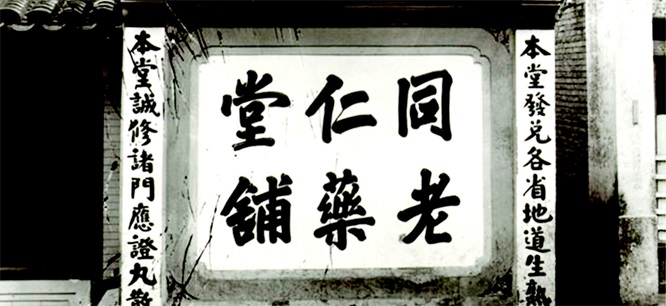 本堂發兌各省地道生熟
同仁堂
老藥舖
本堂誠修諸門應證丸散